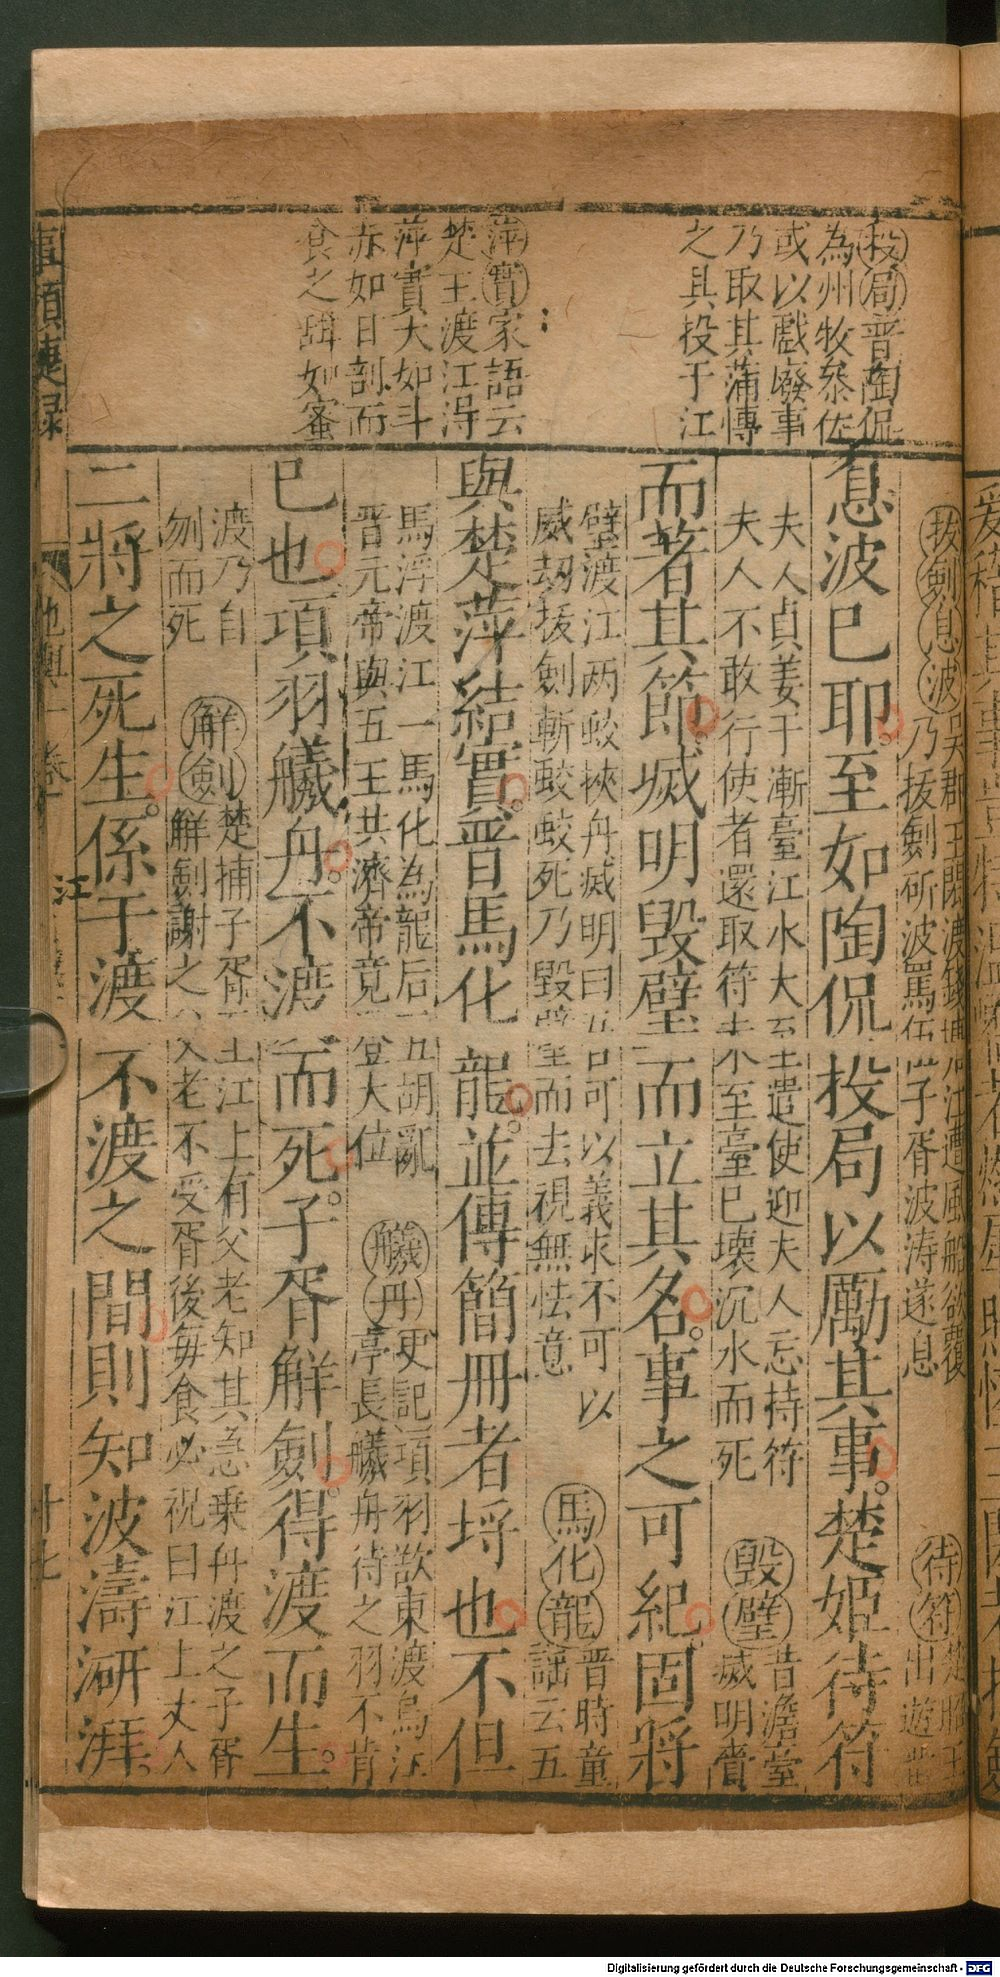 投局晋陶侃
為州牧叅佐
或以戲廢事
乃取其蒲慱
之具投于江
萍實家語云
楚王渡江得
萍實大如斗
赤如日剖而
食之甜如蜜
拔劍息波吳郡王閎渡錢塘江遭風船欲覆
乃拔劍斫波罵伍子胥波涛遂息
待符楚昭王
出遊畱
息波已耶至如陶侃投局以勵其事楚姬待符
夫人貞姜于漸臺江水大至王遣使迎夫人忘持符
夫人不敢行使者還取符未至臺已壊沉水而死
毀璧昔澹臺
滅明賫
而著其節滅明毀璧而立其名事之可紀固將
璧渡江两蛟挾舟滅明曰吾可以義求不可以
威劫拔劍斬蛟蛟死乃毀璧而去視無恡意
馬化龍晋時童
謡云五
與楚萍結實晋馬化龍並傳簡冊者埒也不但
馬浮渡江一馬化為龍后五胡亂
晋元帝與五王共濟帝竟登大位
艤舟史記項羽欲東渡烏江
亭長艤舟待之羽不肯
已也項羽艤舟不渡而死子胥解劍得渡而生
渡乃自
刎而死
解劍楚捕子胥至江上有父老知其急乗舟渡之子胥
解劍謝之父老不受胥後每食必祝曰江上丈人
二將之死生係于渡不渡之間則知波濤澎湃
事類捷録
地輿一卷
江
十七
Digitalisierung gefördert durch die Deutsche Forschungsgemeinschaft - DFG